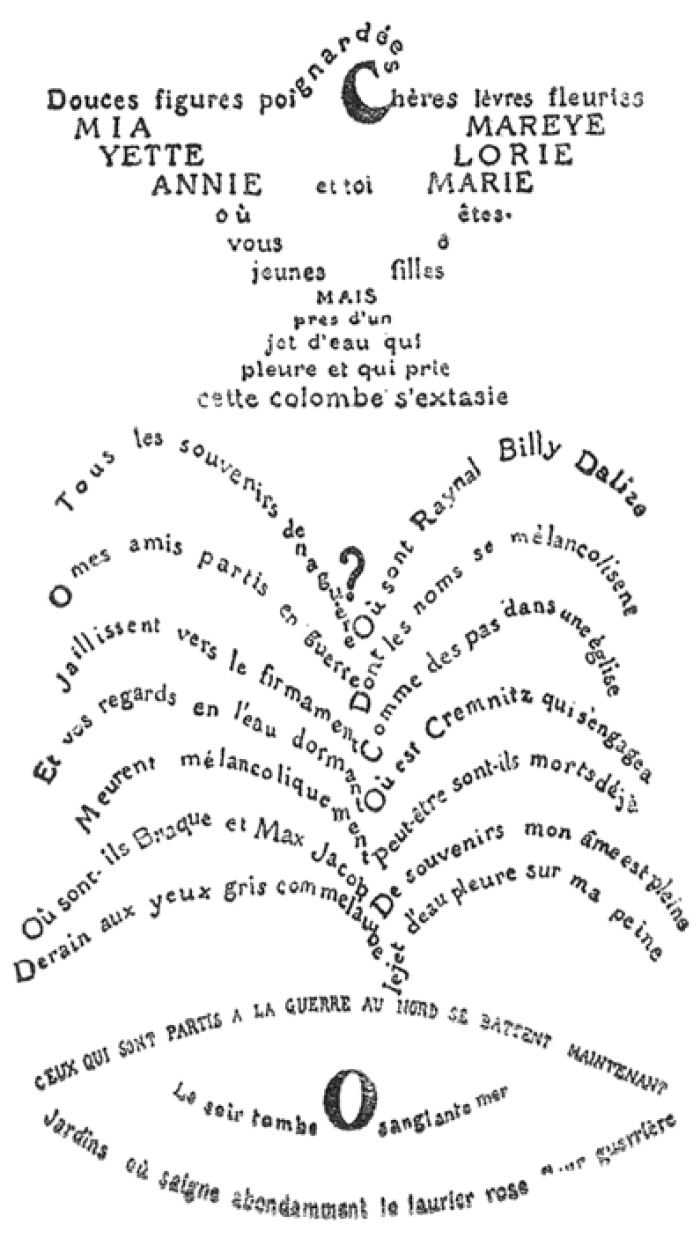 Douces figures poignardées Chères lèvres fleuries
MIA MAREYE
YETTE LORIE
ANNIE et toi MARIE
où êtes-
vous ô
jeunes filles
MAIS
près d'un
jet d'eau qui
pleure et qui prie
cette colombe s'extasie
Tous les souvenirs de naguère
O mes amis partis en guerre
Jaillissent vers le firmament
Et vos regards en l'eau dormant
Meurent mélancoliquement
Où sont-ils Braque et Max Jacob
Derain aux yeux gris comme l'aube
?
Où sont Raynal Billy Dalize
Dont les noms se mélancolisent
Comme des pas dans une église
Où est Cremnitz qui s'engagea
Peut-être sont-ils morts déjà
De souvenirs mon âme est pleine
le jet d'eau pleure sur ma peine
CEUX QUI SONT PARTIS A LA GUERRE AU NORD SE BATTENT MAINTENANT
Le soir tombe O sanglante mer
Jardins où saigne abondamment le laurier rose fleur guerrière